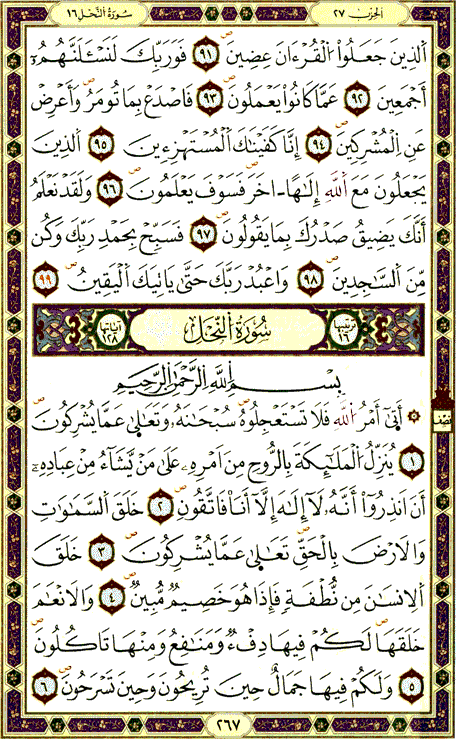 الحزب ٢٧
سُورَةُ النَّحْلِ ١٦
اَلذِينَ جَعَلُوا۟ اُلْقُرْءَانَ عِضِينَ ٩١ فَوَرَبِّكَ لَنَسْـَٔلَنَّهُمُۥٓ
أَجْمَعِينَ ٩٢ عَمَّا كَانُوا۟ يَعْمَلُونَ ٩٣ فَاصْدَعْ بِمَا تُومَرُ وَأَعْرِضْ
عَنِ اِلْمُشْرِكِينَ ٩٤ إِنَّا كَفَيْنَٰكَ اَلْمُسْتَهْزِءِينَ ٩٥ اَلذِينَ
يَجْعَلُونَ مَعَ اَللَّهِ إِلَٰهاً ـ اخَرَ فَسَوْفَ يَعْلَمُونَ ٩٦ وَلَقَدْ نَعْلَمُ
أَنَّكَ يَضِيقُ صَدْرُكَ بِمَا يَقُولُونَ ٩٧ فَسَبِّحْ بِحَمْدِ رَبِّكَ وَكُن
مِّنَ اَلسَّٰجِدِينَ ٩٨ وَاعْبُدْ رَبَّكَ حَتَّىٰ يَاتِيَكَ اَلْيَقِينُ ٩٩
ترتيبها ١٦
سُورَةُ اُلنَّحْلِ
آياتها ١٢٨
بِسْمِ اِللَّهِ اِلرَّحْمَٰنِ اِلرَّحِيمِ
أَتَىٰٓ أَمْرُ اُللَّهِ فَلَا تَسْتَعْجِلُوهُ سُبْحَٰنَهُۥ وَتَعَٰلَىٰ عَمَّا يُشْرِكُونَ
نصف
١ يُنَزِّلُ اُلْمَلَٰٓئِكَةَ بِالرُّوحِ مِنَ اَمْرِهِۦ عَلَىٰ مَنْ يَّشَآءُ مِنْ عِبَادِهِۦٓ
أَنَ اَنذِرُوٓا۟ أَنَّهُۥ لَآ إِلَٰهَ إِلَّآ أَنَا۠ فَاتَّقُونِ ٢ خَلَقَ اَلسَّمَٰوَٰتِ
وَالَارْضَ بِالْحَقِّ تَعَٰلَىٰ عَمَّا يُشْرِكُونَ ٣ خَلَقَ
اَلِانسَٰنَ مِن نُّطْفَةٍ فَإِذَا هُوَ خَصِيمٌ مُّبِينٌ ٤ وَالَانْعَٰمَ
خَلَقَهَا لَكُمْ فِيهَا دِفْءٌ وَمَنَٰفِعُ وَمِنْهَا تَاكُلُونَ
٥ وَلَكُمْ فِيهَا جَمَالٌ حِينَ تُرِيحُونَ وَحِينَ تَسْرَحُونَ ٦
٢٦٧